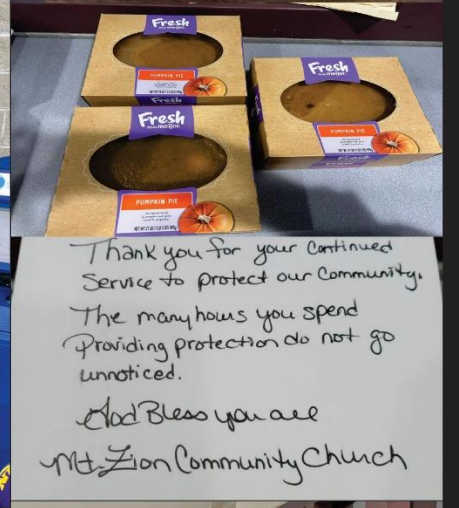 Fresh
from meijer.
PUMPKIN PIE
Fresh
Fresh
from meijer.
PUMPKIN PIE
Fresh
from meijer.
PUMPKIN PIE
Thank you for your Continued
Service to protect our Community.
The many hours you spend
Providing protection do not go
unnoticed.
God Bless you all
Mt. Zion Community Church